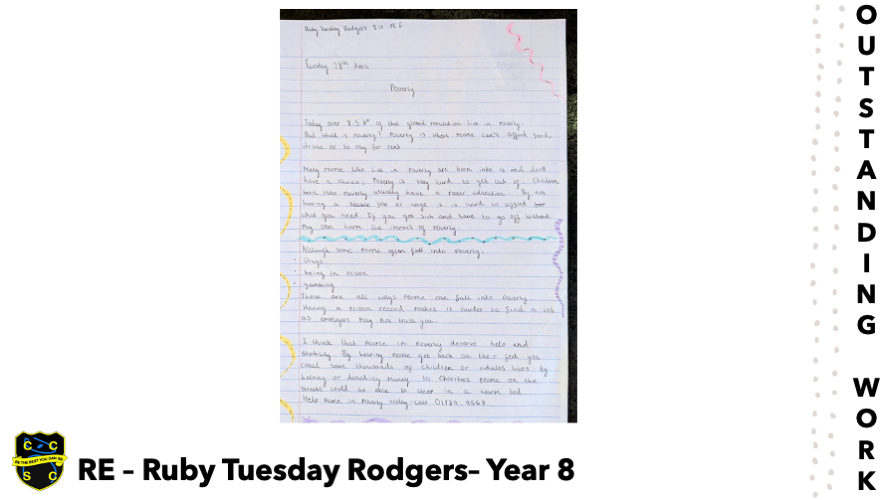 Ruby Tuesday Rodgers 8iv RE
Tuesday 28th April
Poverty
Today over 8.5 % of the global population live in poverty.
But what is poverty? Poverty is where people can't afford food,
drinks or to pay for rent.
Many people who live in poverty are born into it and don't
have a choice. Poverty is very hard to get out of. Children
born into poverty usually have a poor education. By not
having a stable job or wage it is hard to afford
what you need. If you get sick and have to go off without
pay can harm the impact of poverty.
Although some people often fall into poverty:
• Drugs
• being in prison
• gambling
These are all ways people can fall into poverty.
Having a prison record makes it harder to find a job
as employers may not trust you.
I think that people in poverty deserve help and
stability. By helping people get back on their feet you
could save thousands of children or adults lives. By
helping or donating money to charities people on the
streets could be able to sleep in a warm bed.
Help people in poverty today. call
OUTSTANDING WORK
C C
BE THE BEST YOU CAN BE
S C
RE – Ruby Tuesday Rodgers– Year 8